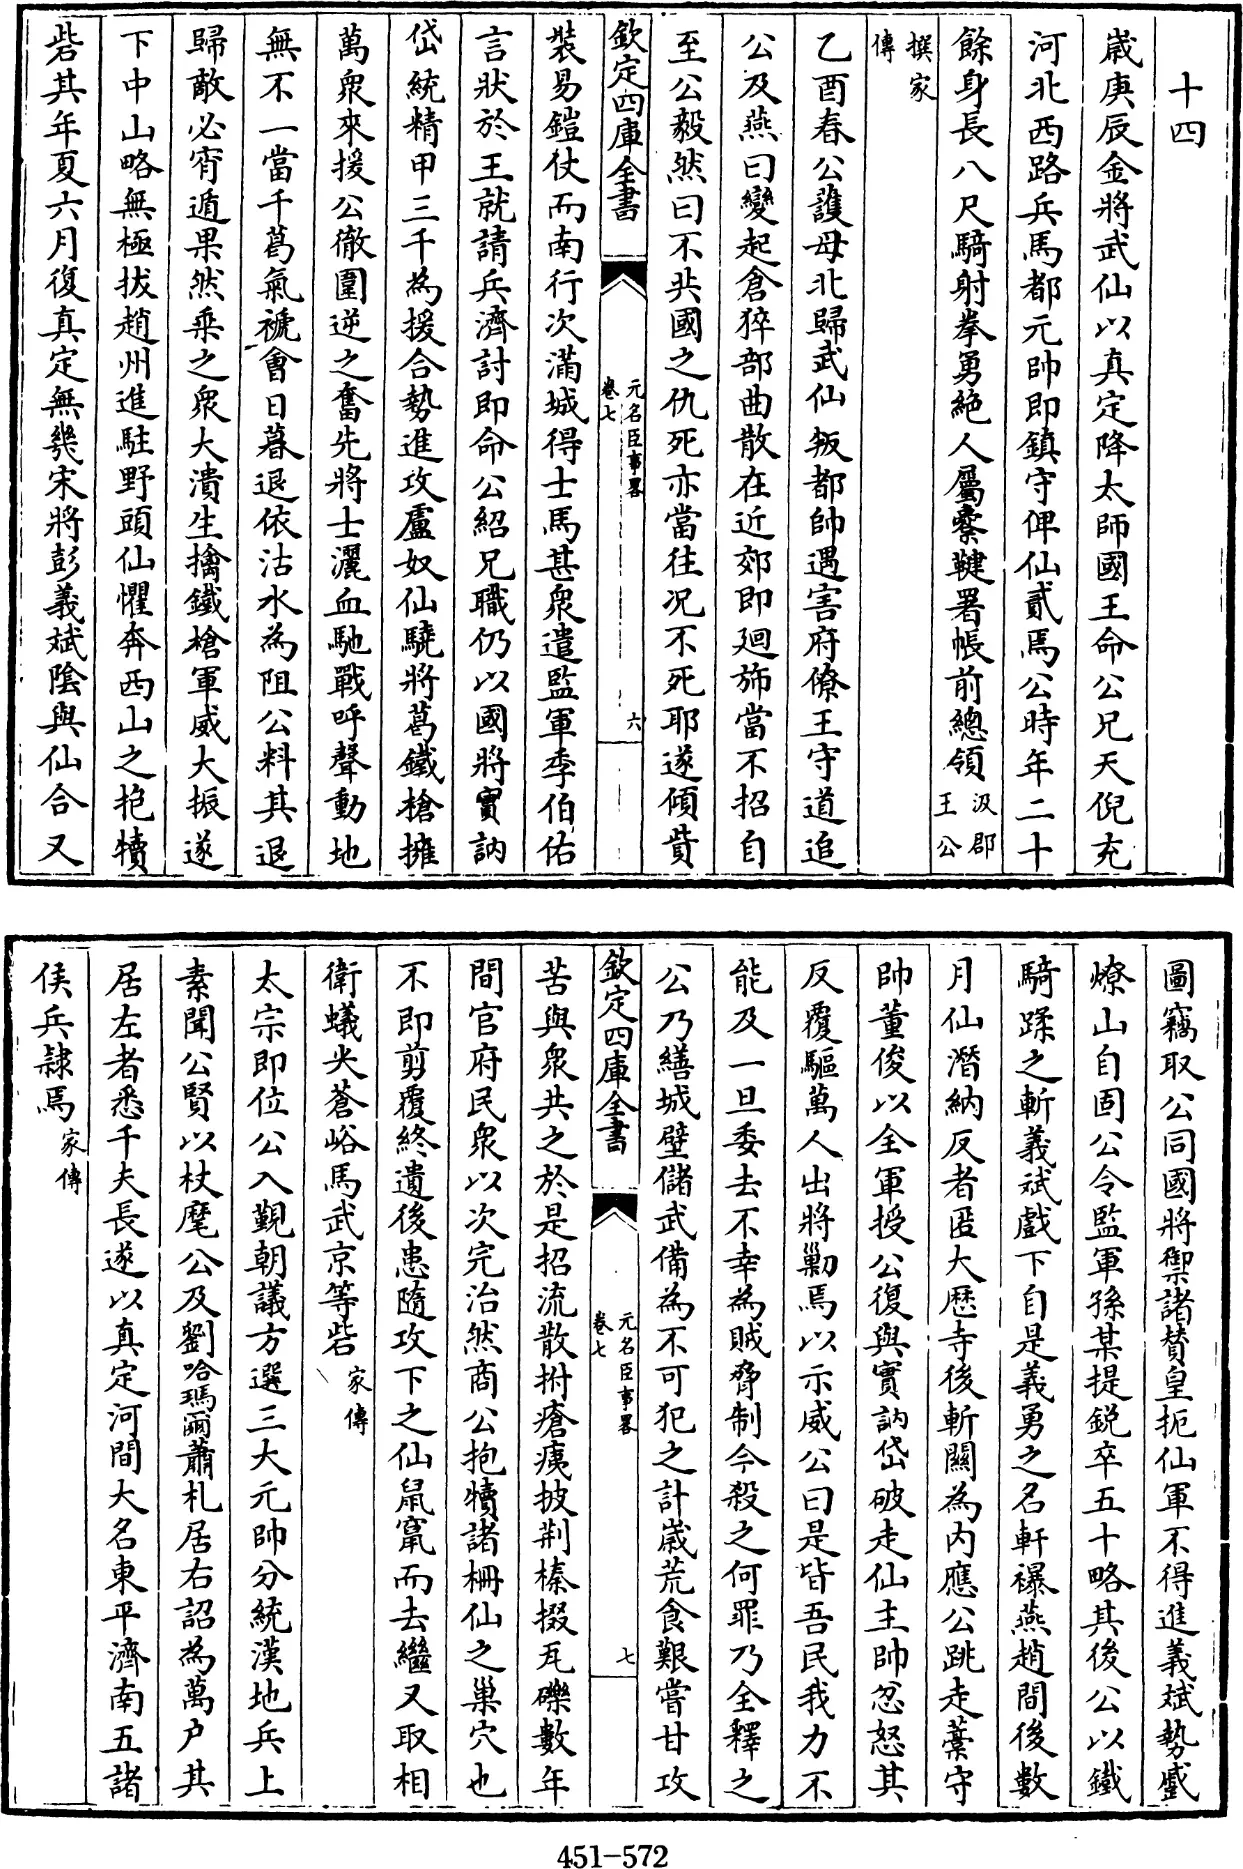 十四
歲庚辰金將武仙以真定降太師國王命公兄天倪充
河北西路兵馬都元帥即鎮守俾仙貳焉公時年二十
餘身長八尺騎射拳勇絶人屬櫜鞬署帳前總領汲郡王公
撰家傳
乙酉春公護母北歸武仙叛都帥遇害府僚王守道追
公及燕曰變起倉猝部曲散在近郊即廻斾當不招自
至公毅然曰不共國之仇死亦當往况不死耶遂傾貲
欽定四庫全書
元名臣事畧
卷七
六
裝易鎧仗而南行次滿城得士馬甚衆遣監軍李伯佑
言狀於王就請兵濟討即命公紹兄職仍以國將實訥
岱統精甲三千為援合勢進攻盧奴仙驍將葛鐵槍擁
萬衆來援公徹圍逆之奮先將士灑血馳戰呼聲動地
無不一當千葛氣褫會日暮退依沽水為阻公料其退
歸敵必宵遁果然乘之衆大潰生擒鐵槍軍威大振遂
下中山略無極拔趙州進駐野頭仙懼奔西山之抱犢
砦其年夏六月復真定無幾宋將彭義斌陰與仙合又
圖竊取公同國將禦諸贊皇扼仙軍不得進義斌勢蹙
燎山自固公令監軍孫某提鋭卒五十略其後公以鐵
騎蹂之斬義斌戲下自是義勇之名軒㬥燕趙間後數
月仙潛納反者匿大歴寺後斬關為内應公跳走藁守
帥董俊以全軍授公復與實訥岱破走仙主帥忿怒其
反覆驅萬人出將勦焉以示威公曰是皆吾民我力不
能及一旦委去不幸為賊脅制今殺之何罪乃全釋之
公乃繕城壁儲武備為不可犯之計歲荒食艱嘗甘攻
欽定四庫全書
元名臣事畧
卷七
七
苦與衆共之於是招流散拊瘡痍披荆榛掇瓦礫數年
間官府民衆以次完治然商公抱犢諸柵仙之巢穴也
不即剪覆終遺後患隨攻下之仙鼠竄而去繼又取相
衛蟻尖蒼峪馬武京等砦家傳
太宗即位公入覲朝議方選三大元帥分統漢地兵上
素聞公賢以杖麾公及劉哈瑪爾蕭札居右詔為萬户其
居左者悉千夫長遂以真定河間大名東平濟南五諸
侯兵隷焉家傳
451-572